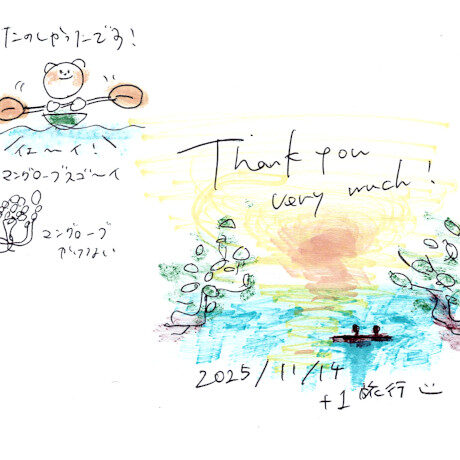 たのしかったです!
イェ〜イ!
マングローブスゴ〜イ
マングローブ
Thank you
very much!
2025/11/14
+1旅行